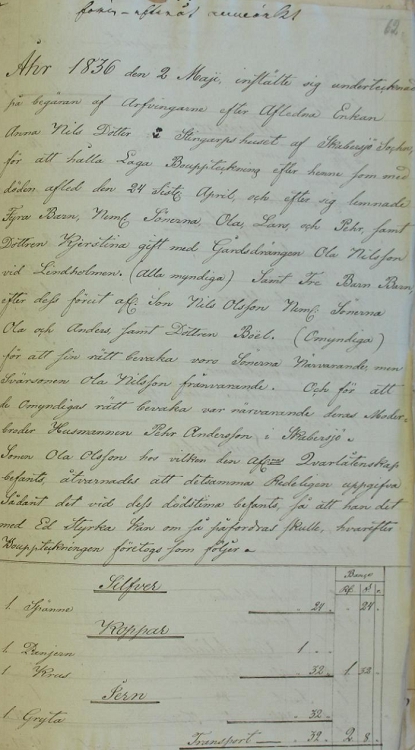 62.
Åhr 1836 den 2 Maji, inställte sig undertecknad
på begäran af Arfvingarne efter Afledna Enkan
Anna Nils Dotter i Stingarpshuset af Skabersjö Sochn,
för att hålla Laga Bouppteckning efter henne som med
döden afled den 24 Sistl. April, och efter sig lemnade
Fyra Barn, Neml. Sönerna, Ola, Lars, och Pehr, samt
Döttren Kjerstina gift med Gårdsdrängen Ola Nilsson
vid Lindholmen. (Alla myndiga) Samt Tre Barn Barn,
efter dess förut afl. Son Nils Olsson Neml. Sönerna
Ola och Anders, samt Döttren Boel. (Omyndiga)
för att sin rätt bevaka voro Sönerna Närvarande men
Svärsonen Ola Nilsson frånvarande. Och för att
de Omyndigas rätt bevaka var närvarande deras Moder-
broder Husmannen Pehr Andersson i Skabersjö.
Sonen Ola Olsson hos vilken den Qvarlåtenskap
befants, åtvarnades att detsamma Redeligen uppgifva
Sådant det vid dess dödstima befants, så att han det
med Ed Styrka Kan om så påfordras skulle, hvarefter
Bouppteckningen företogs som följer.
Banco
Silfver
1. Spänne 24. 24.
Koppar
1. 1.
1. Krus 32. 1 32.
Jern
1. Gryta 32.
Transport 32. 2 8.